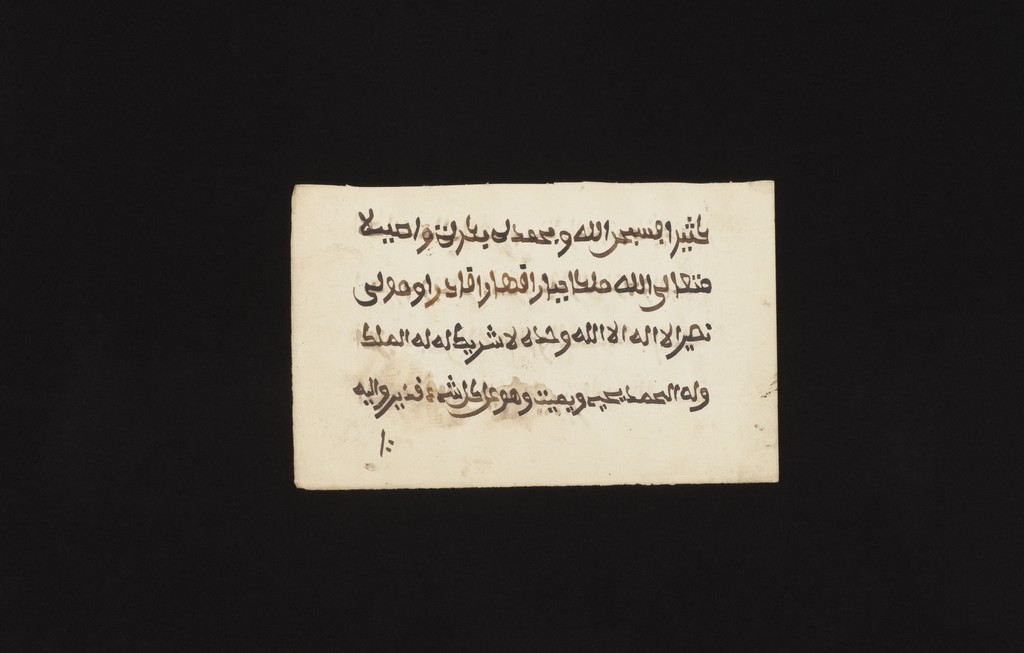 كثيرا فسبحن الله وبحمده بكرة واصيلا
فتعالى الله ملكا جبارا قهارا قادرا وهو لى
نصيرا لا اله الا الله وحده لا شريك له له الملك
وله الحمد يحيى ويميت وهو على كل شىء قدير واليه